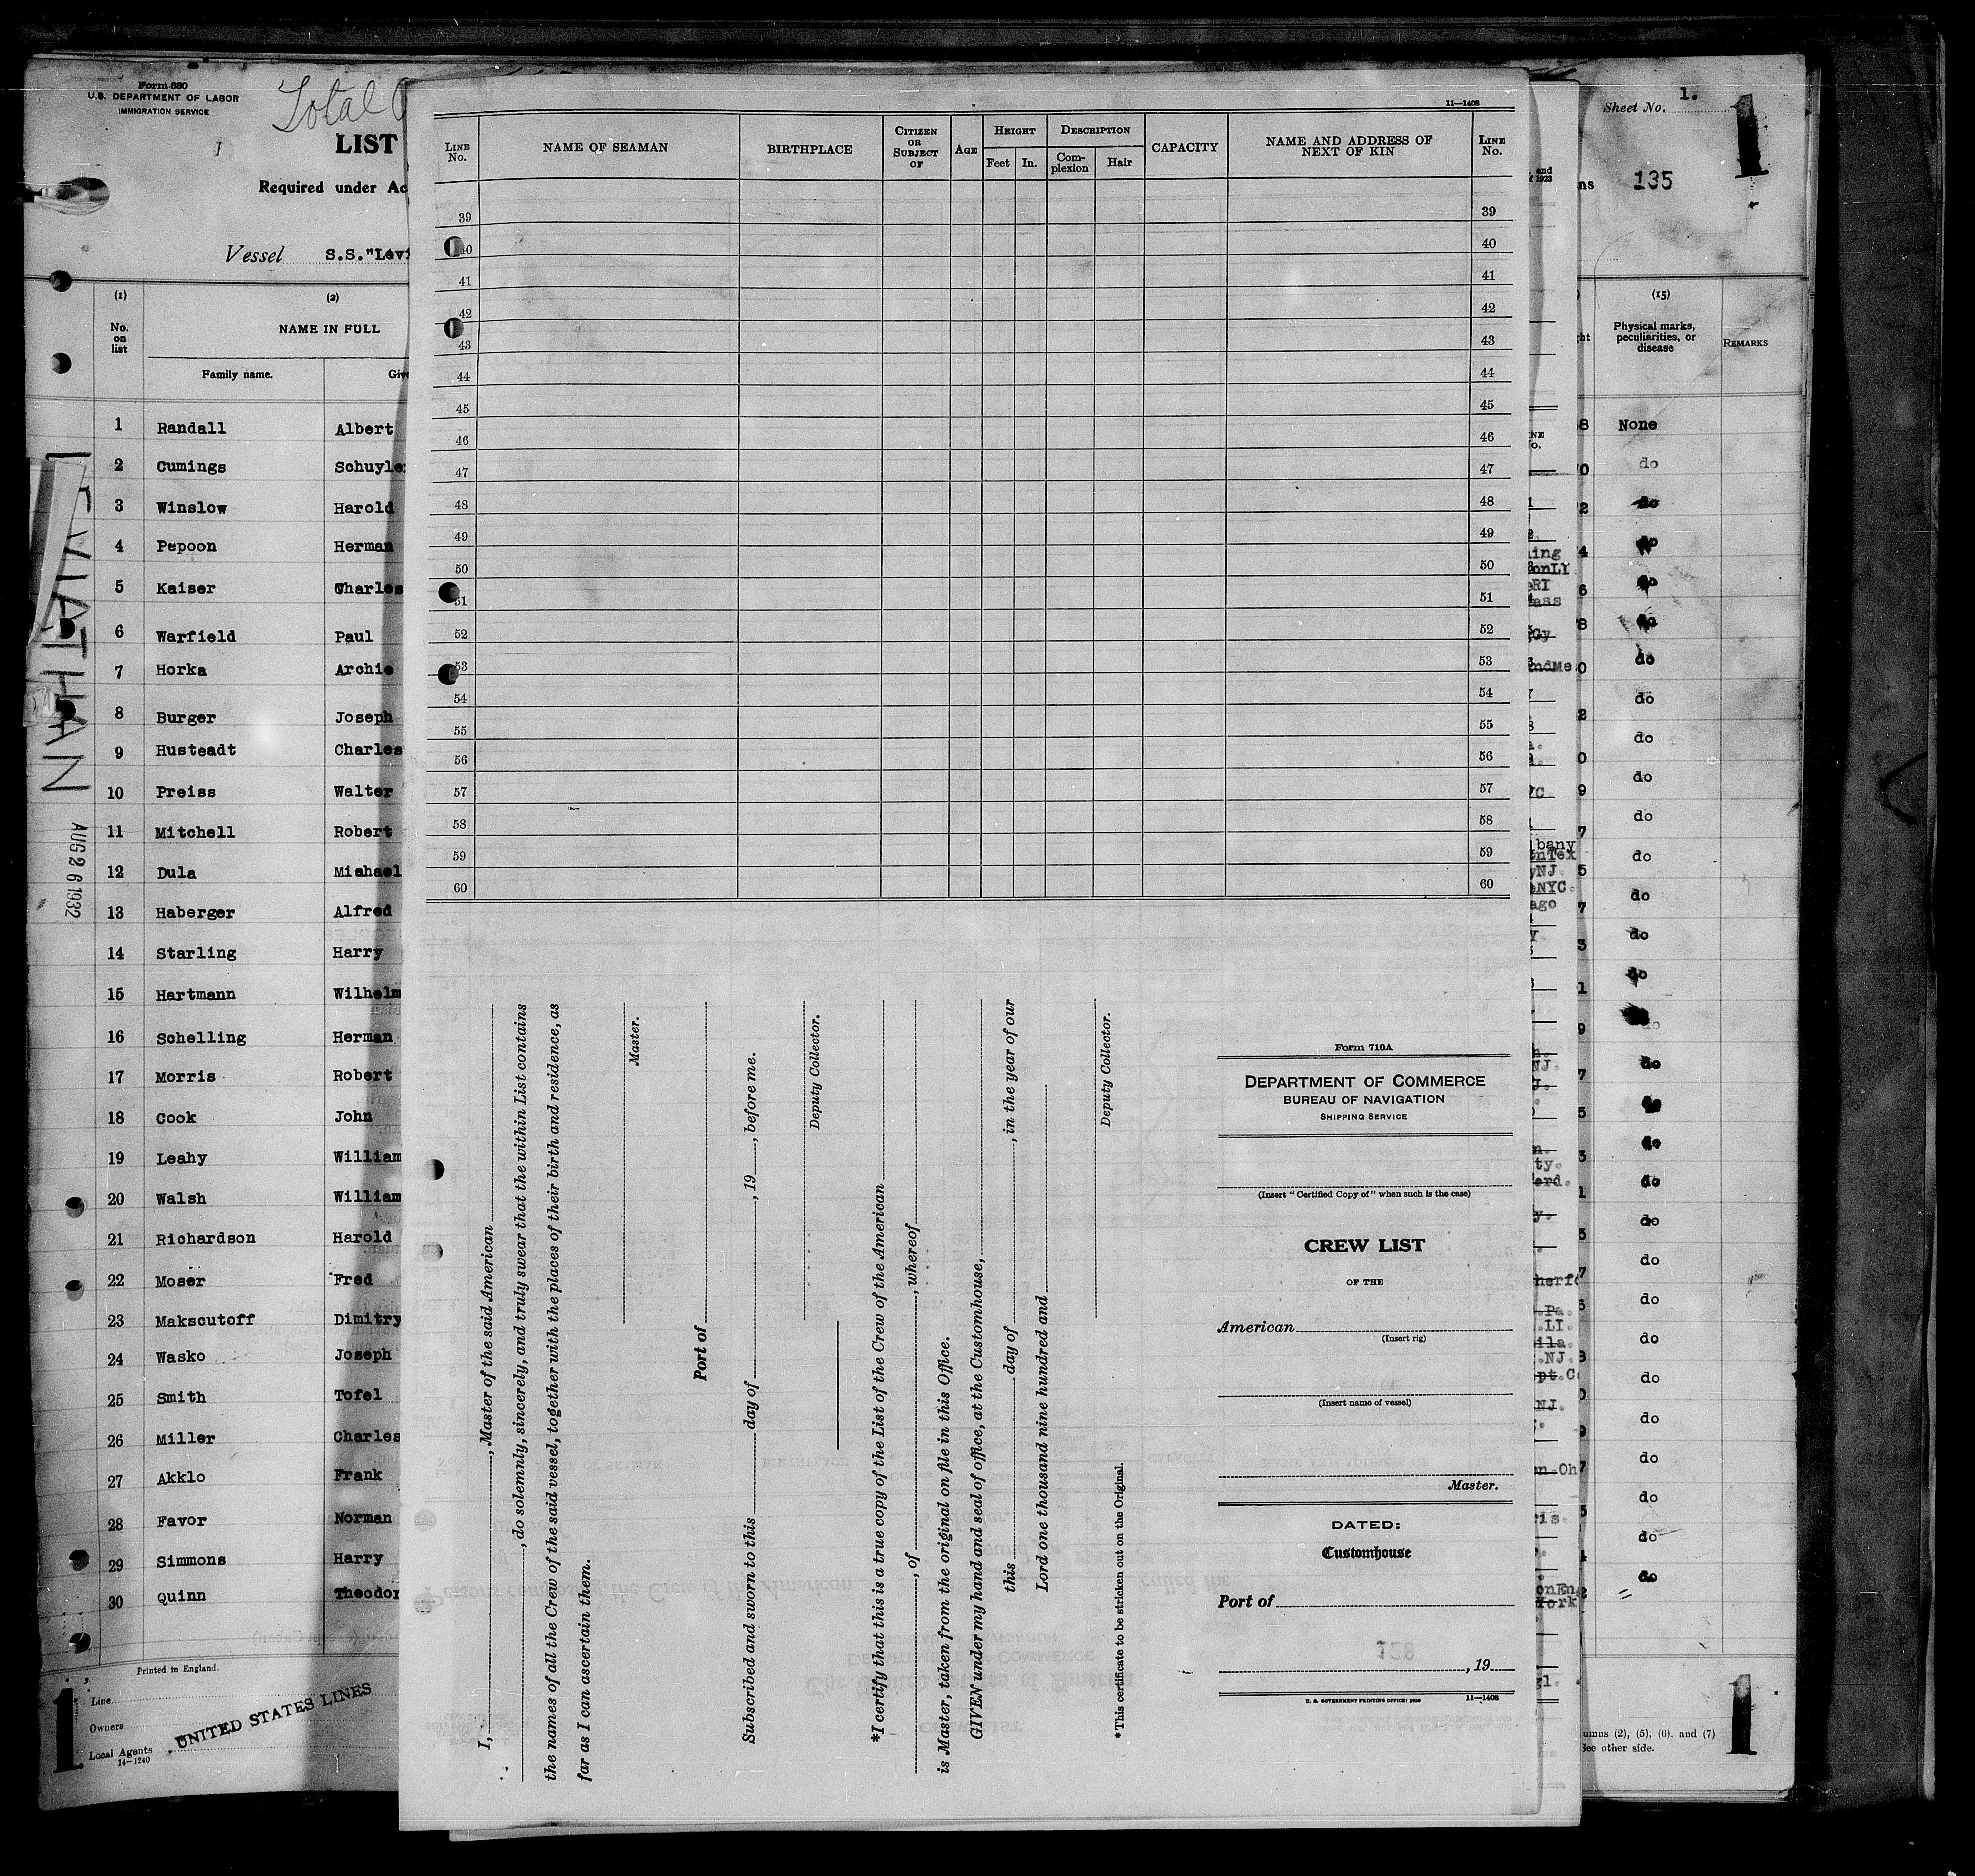 Form 680
U.S. DEPARTMENT OF LABOR
IMMIGRATION SERVICE
Total
LIST
Required under Ac
Vessel S.S."Levi
(1) (2)
No. on list
NAME IN FULL
Family name. Give
1 Randall Albert
2 Cumings Schuyle
3 Winslow Harold
4 Pepoon Herman
5 Kaiser Charles
6 Warfield Paul
7 Horka Archie
8 Burger Joseph
9 Husteadt Charles
10 Preiss Walter
11 Mitchell Robert
12 Dula Michael
13 Haberger Alfred
14 Starling Harry
15 Hartmann Wilhelm
16 Schelling Herman
17 Morris Robert
18 Cook John
19 Leahy William
20 Walsh William
21 Richardson Harold
22 Moser Fred
23 Makscutoff Dimitry
24 Wasko Joseph
25 Smith Tofel
26 Miller Charles
27 Akklo Frank
28 Favor Norman
29 Simmons Harry
30 Quinn Theodor
Printed in England.
Line
Owners
Local Agents
UNITED STATES LINES
14-1240
1
LEVIATHAN
AUG 26 1932
11—1408
LINE No.
NAME OF SEAMAN
BIRTHPLACE
CITIZEN OR SUBJECT OF
AGE
HEIGHT
Feet In.
DESCRIPTION
Complexion Hair
CAPACITY
NAME AND ADDRESS OF NEXT OF KIN
LINE No.
39 39
40 40
41 41
42 42
43 43
44 44
45 45
46 46
47 47
48 48
49 49
50 50
51 51
52 52
53 53
54 54
55 55
56 56
57 57
58 58
59 59
60 60
I, , Master of the said American
, do solemnly, sincerely, and truly swear that the within List contains
the names of all the Crew of the said vessel, together with the places of their birth and residence, as
far as I can ascertain them.
Master.
Port of
Subscribed and sworn to this day of , 19 , before me.
Deputy Collector.
*I certify that this is a true copy of the List of the Crew of the American
, of , whereof
is Master, taken from the original on file in this Office.
GIVEN under my hand and seal of office, at the Customhouse,
this day of , in the year of our
Lord one thousand nine hundred and
Deputy Collector.
*This certificate to be stricken out on the Original.
Form 710A
DEPARTMENT OF COMMERCE
BUREAU OF NAVIGATION
SHIPPING SERVICE
(Insert "Certified Copy of" when such is the case)
CREW LIST
OF THE
American
(Insert rig)
(Insert name of vessel)
Master.
DATED:
Customhouse
Port of
, 19
U. S. GOVERNMENT PRINTING OFFICE: 1930 11—1408
Sheet No. 1.
1
135
(15)
Physical marks, peculiarities, or disease
REMARKS
None
do
do
do
do
do
do
do
do
do
do
do
do
do
do
do
do
do
do
do
do
do
do
do
do
do
do
do
do
do
umns (2), (5), (6), and (7)
See other side.
1